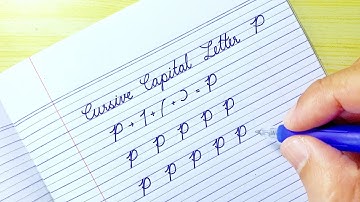 Cursive Capital Letter P
P + 1 + ( + ) = P
P P P P P
P P P P P